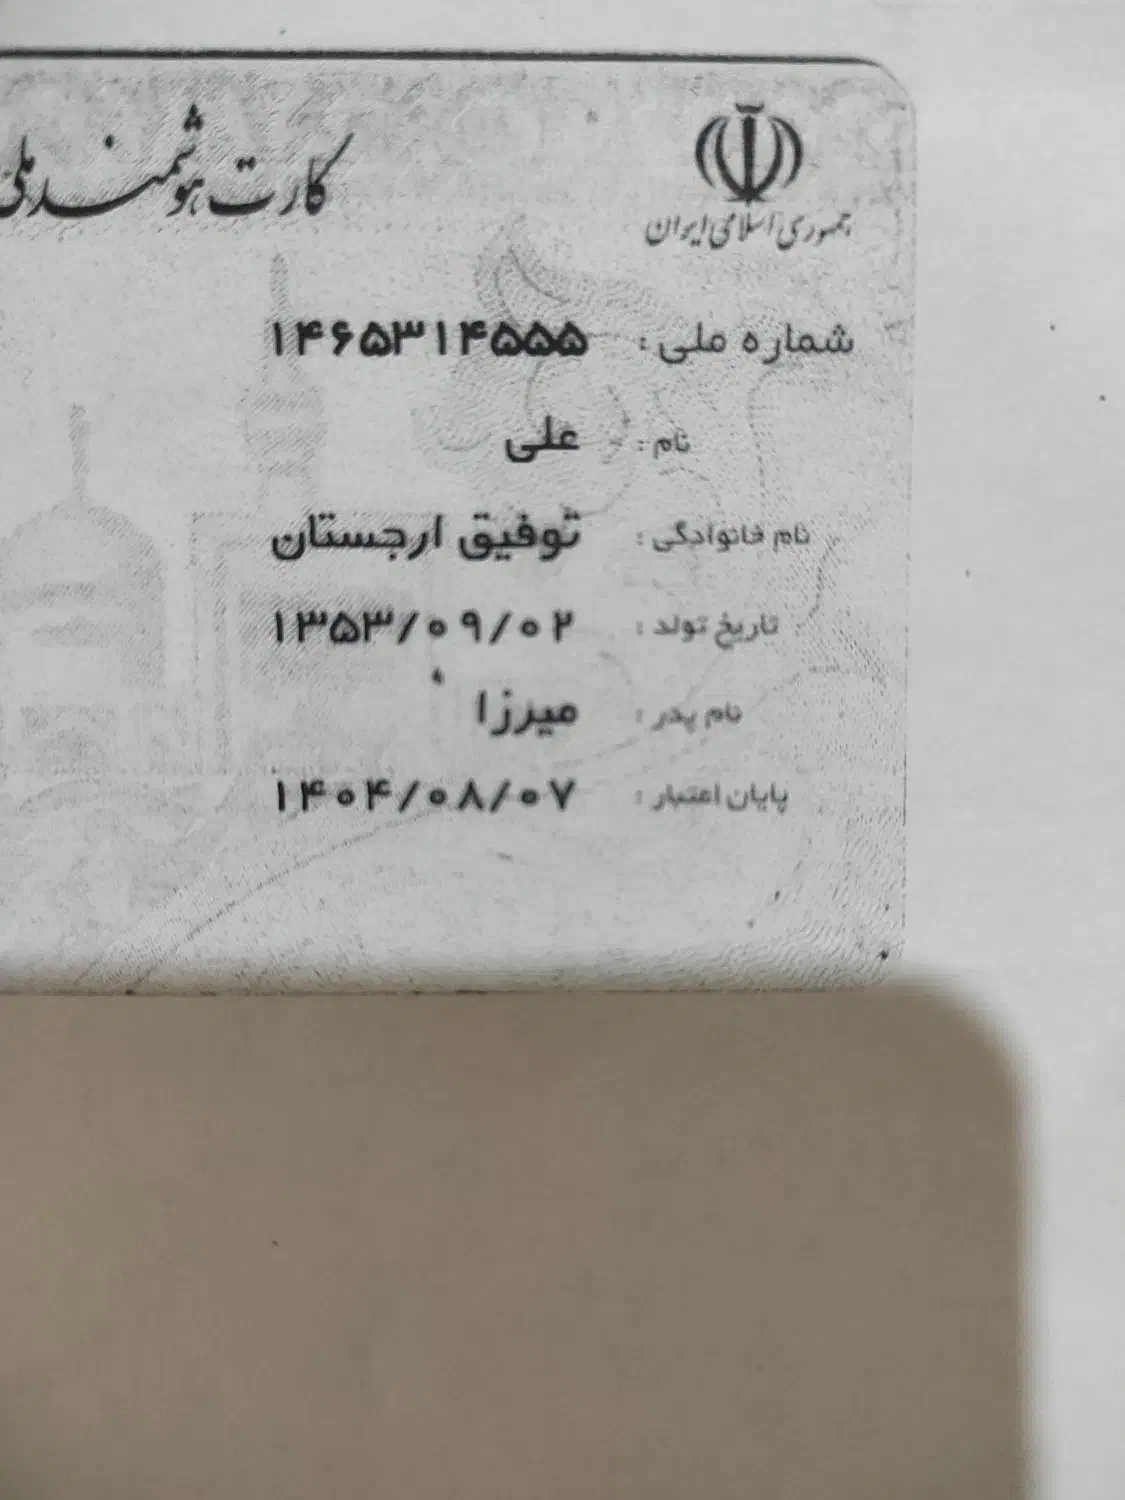 کارت هوشمند ملی
جمهوری اسلامی ایران
شماره ملی : ۱۴۶۵۳۱۴۵۵۵
نام : علی
نام خانوادگی : توفیق ارجستان
تاریخ تولد : ۱۳۵۳/۰۹/۰۲
نام پدر : میرزا
پایان اعتبار : ۱۴۰۴/۰۸/۰۷